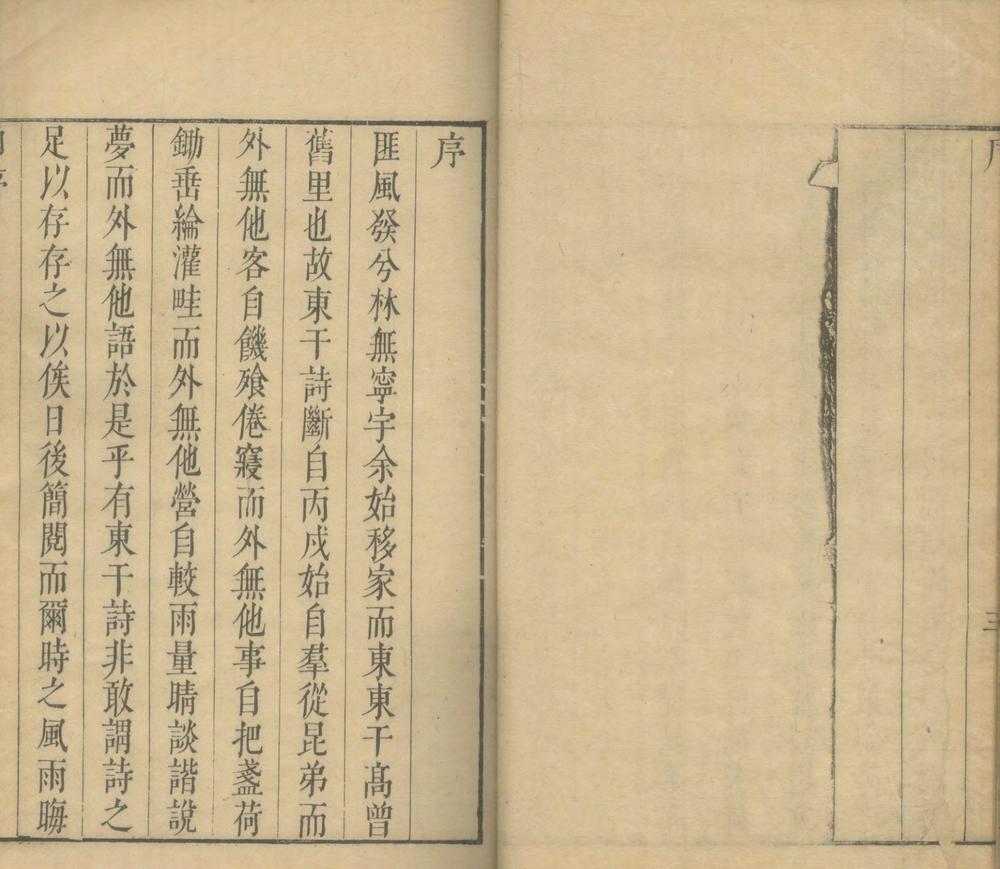 序
三
序
匪風發兮林無寧宇余始移家而東東干髙曾
舊里也故東干詩斷自丙戍始自羣從昆弟而
外無他客自饑飱倦寢而外無他事自把盞荷
鋤垂綸灌畦而外無他營自較雨量晴談諧說
夢而外無他語於是乎有東干詩非敢謂詩之
足以存存之以俟日後簡閱而爾時之風雨晦